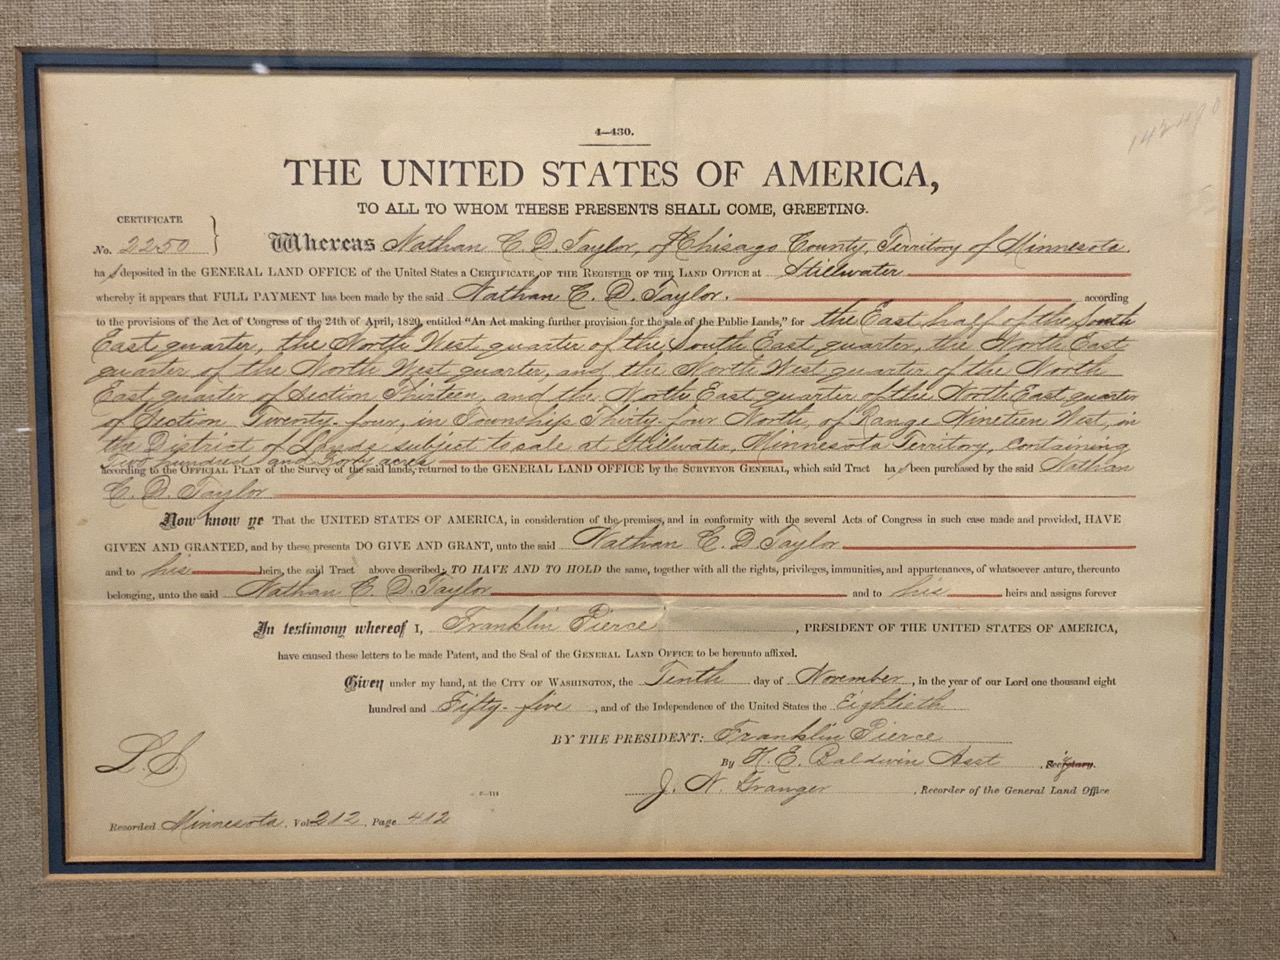 4—430.
THE UNITED STATES OF AMERICA,
TO ALL TO WHOM THESE PRESENTS SHALL COME, GREETING.
CERTIFICATE
No. 2250 } Whereas Nathan C. D. Taylor, of Chisago County, Territory of Minnesota.
has deposited in the GENERAL LAND OFFICE of the United States a CERTIFICATE OF THE REGISTER OF THE LAND OFFICE at Stillwater
whereby it appears that FULL PAYMENT has been made by the said Nathan C. D. Taylor. according
to the provisions of the Act of Congress of the 24th of April, 1820, entitled “An Act making further provision for the sale of the Public Lands,” for the East half of the South
East quarter, the North West quarter of the South East quarter, the North East
quarter of the North West quarter, and the North West quarter of the North
East quarter of Section Thirteen, and the North East quarter of the North East quarter
of Section Twenty-four, in Township Thirty-four North, of Range Nineteen West, in
the District of Lands subject to sale at Stillwater, Minnesota Territory, containing
Two hundred and Forty acres
according to the OFFICIAL PLAT of the Survey of the said lands, returned to the GENERAL LAND OFFICE by the SURVEYOR GENERAL, which said Tract has been purchased by the said Nathan
C. D. Taylor
Now know ye That the UNITED STATES OF AMERICA, in consideration of the premises, and in conformity with the several Acts of Congress in such case made and provided, HAVE
GIVEN AND GRANTED, and by these presents DO GIVE AND GRANT, unto the said Nathan C. D Taylor
and to his heirs, the said Tract above described; TO HAVE AND TO HOLD the same, together with all the rights, privileges, immunities, and appurtenances, of whatsoever nature, thereunto
belonging, unto the said Nathan C. D. Taylor and to his heirs and assigns forever
In testimony whereof I, Franklin Pierce, PRESIDENT OF THE UNITED STATES OF AMERICA,
have caused these letters to be made Patent, and the Seal of the GENERAL LAND OFFICE to be hereunto affixed.
Given under my hand, at the CITY OF WASHINGTON, the Tenth day of November, in the year of our Lord one thousand eight
hundred and Fifty-five, and of the Independence of the United States the Eightieth
BY THE PRESIDENT: Franklin Pierce
L.S.
By H. E. Baldwin Asst, Sec'y
J. N. Granger, Recorder of the General Land Office
Recorded Minnesota, Vol 212, Page 412